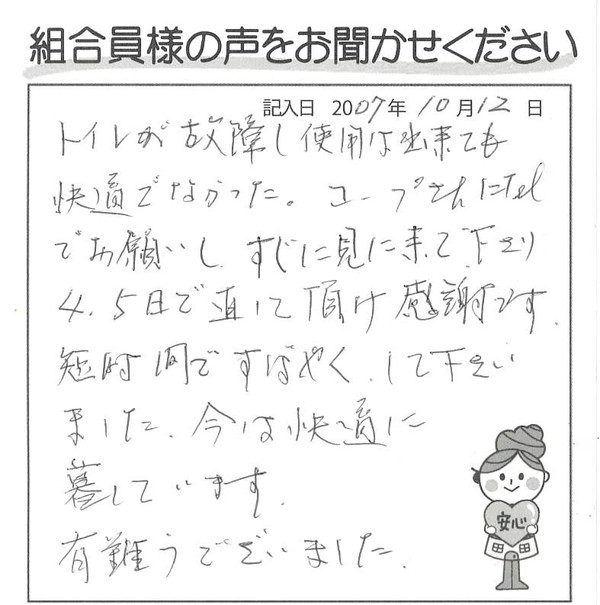 組合員様の声をお聞かせください
記入日 2007年 10月12日
トイレが故障し使用は出来ても
快適でなかった。コープさんにtel
でお願いし、すぐに見に来て下さり
4.5日で直して頂け感謝です。
短時間ですばやく、して下さい
ました、今は快適に
暮しています。
有難うございました。
安心